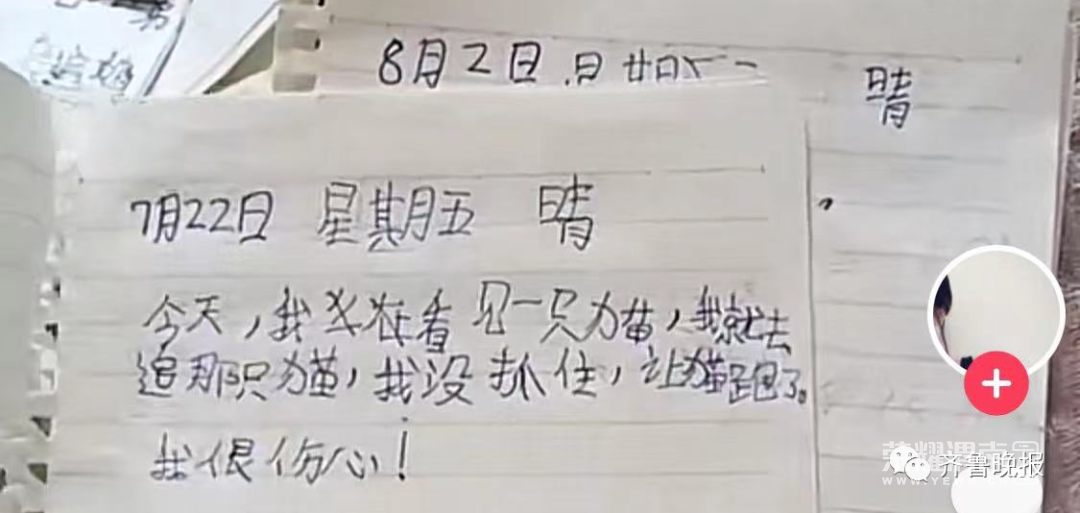 8月2日
晴
7月22日 星期五 晴
今天，我在看见一只猫，我就去
追那只猫，我没抓住，让猫跑了。
我很伤心！
齐鲁晚报